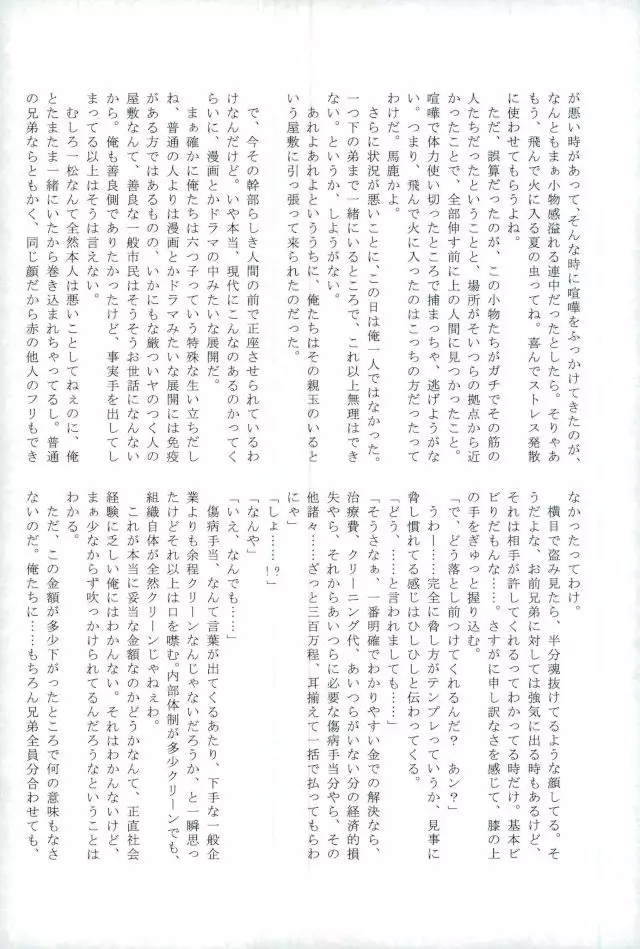 が悪い時があって、そんな時に喧嘩をふっかけてきたのが、
なんともまぁ小物感溢れる連中だったとしたら。そりゃあ
もう、飛んで火に入る夏の虫ってね。喜んでストレス発散
に使わせてもらうよね。
ただ、誤算だったのが、この小物たちがガチでその筋の
人たちだったということと、場所がそいつらの拠点から近
かったことで、全部伸す前に上の人間に見つかったこと。
喧嘩で体力使い切ったところで捕まっちゃ、逃げようがな
い。つまり、飛んで火に入ったのはこっちの方だったって
わけだ。馬鹿かよ。
さらに状況が悪いことに、この日は俺一人ではなかった。
一つ下の弟まで一緒にいるところで、これ以上無理はでき
ない。というか、しようがない。
あれよあれよというううちに、俺たちはその親玉のいると
いう屋敷に引っ張って来られたのだった。
で、今その幹部らしき人間の前で正座させられているわ
けなんだけど。いや本当、現代にこんなのあるのかってく
らいに、漫画とかドラマの中みたいな展開だ。
まぁ確かに俺たちは六つ子っていう特殊な生い立ちだし
ね、普通の人よりは漫画とかドラマみたいな展開には免疫
がある方ではあるものの、いかにもな厳ついヤのつく人の
屋敷なんて、善良な一般市民はそうそうお世話になんない
から。俺も善良側でありたかったけど、事実手を出してし
まってる以上はそうは言えない。
むしろ一松なんて全然本人は悪いことしてねぇのに、俺
とたまたま一緒にいたから巻き込まれちゃってるし。普通
の兄弟ならともかく、同じ顔だから赤の他人のフリもでき
なかったってわけ。
横目で盗み見たら、半分魂抜けてるような顔してる。そ
うだよな、お前兄弟に対しては強気に出る時もあるけど、
それは相手が許してくれるってわかってる時だけ。基本ビ
ビりだもんな……。さすがに申し訳なさを感じて、膝の上
の手をぎゅっと握り込む。
「で、どう落とし前つけてくれるんだ？　あン？」
うわー……完全に脅し方がテンプレっていうか、見事に
脅し慣れてる感じはひしひしと伝わってくる。
「どう、……と言われましても……」
「そうさなぁ、一番明確でわかりやすい金での解決なら、
治療費、クリーニング代、あいつらがいない分の経済的損
失やら、それからあいつらに必要な傷病手当分やら、その
他諸々……ざっと三百万程、耳揃えて一括で払ってもらわ
にゃ」
「しょ……！？」
「なんや」
「いえ、なんでも……」
傷病手当、なんて言葉が出てくるあたり、下手な一般企
業よりも余程クリーンなんじゃないだろうか、と一瞬思っ
たけどそれ以上は口を噤む。内部体制が多少クリーンでも、
組織自体が全然クリーンじゃねぇわ。
これが本当に妥当な金額なのかどうかなんて、正直社会
経験に乏しい俺にはわかんない。それはわかんないけど、
まぁ少なからず吹っかけられてるんだろうなということは
わかる。
ただ、この金額が多少下がったところで何の意味もなさ
ないのだ。俺たちに……もちろん兄弟全員分合わせても、